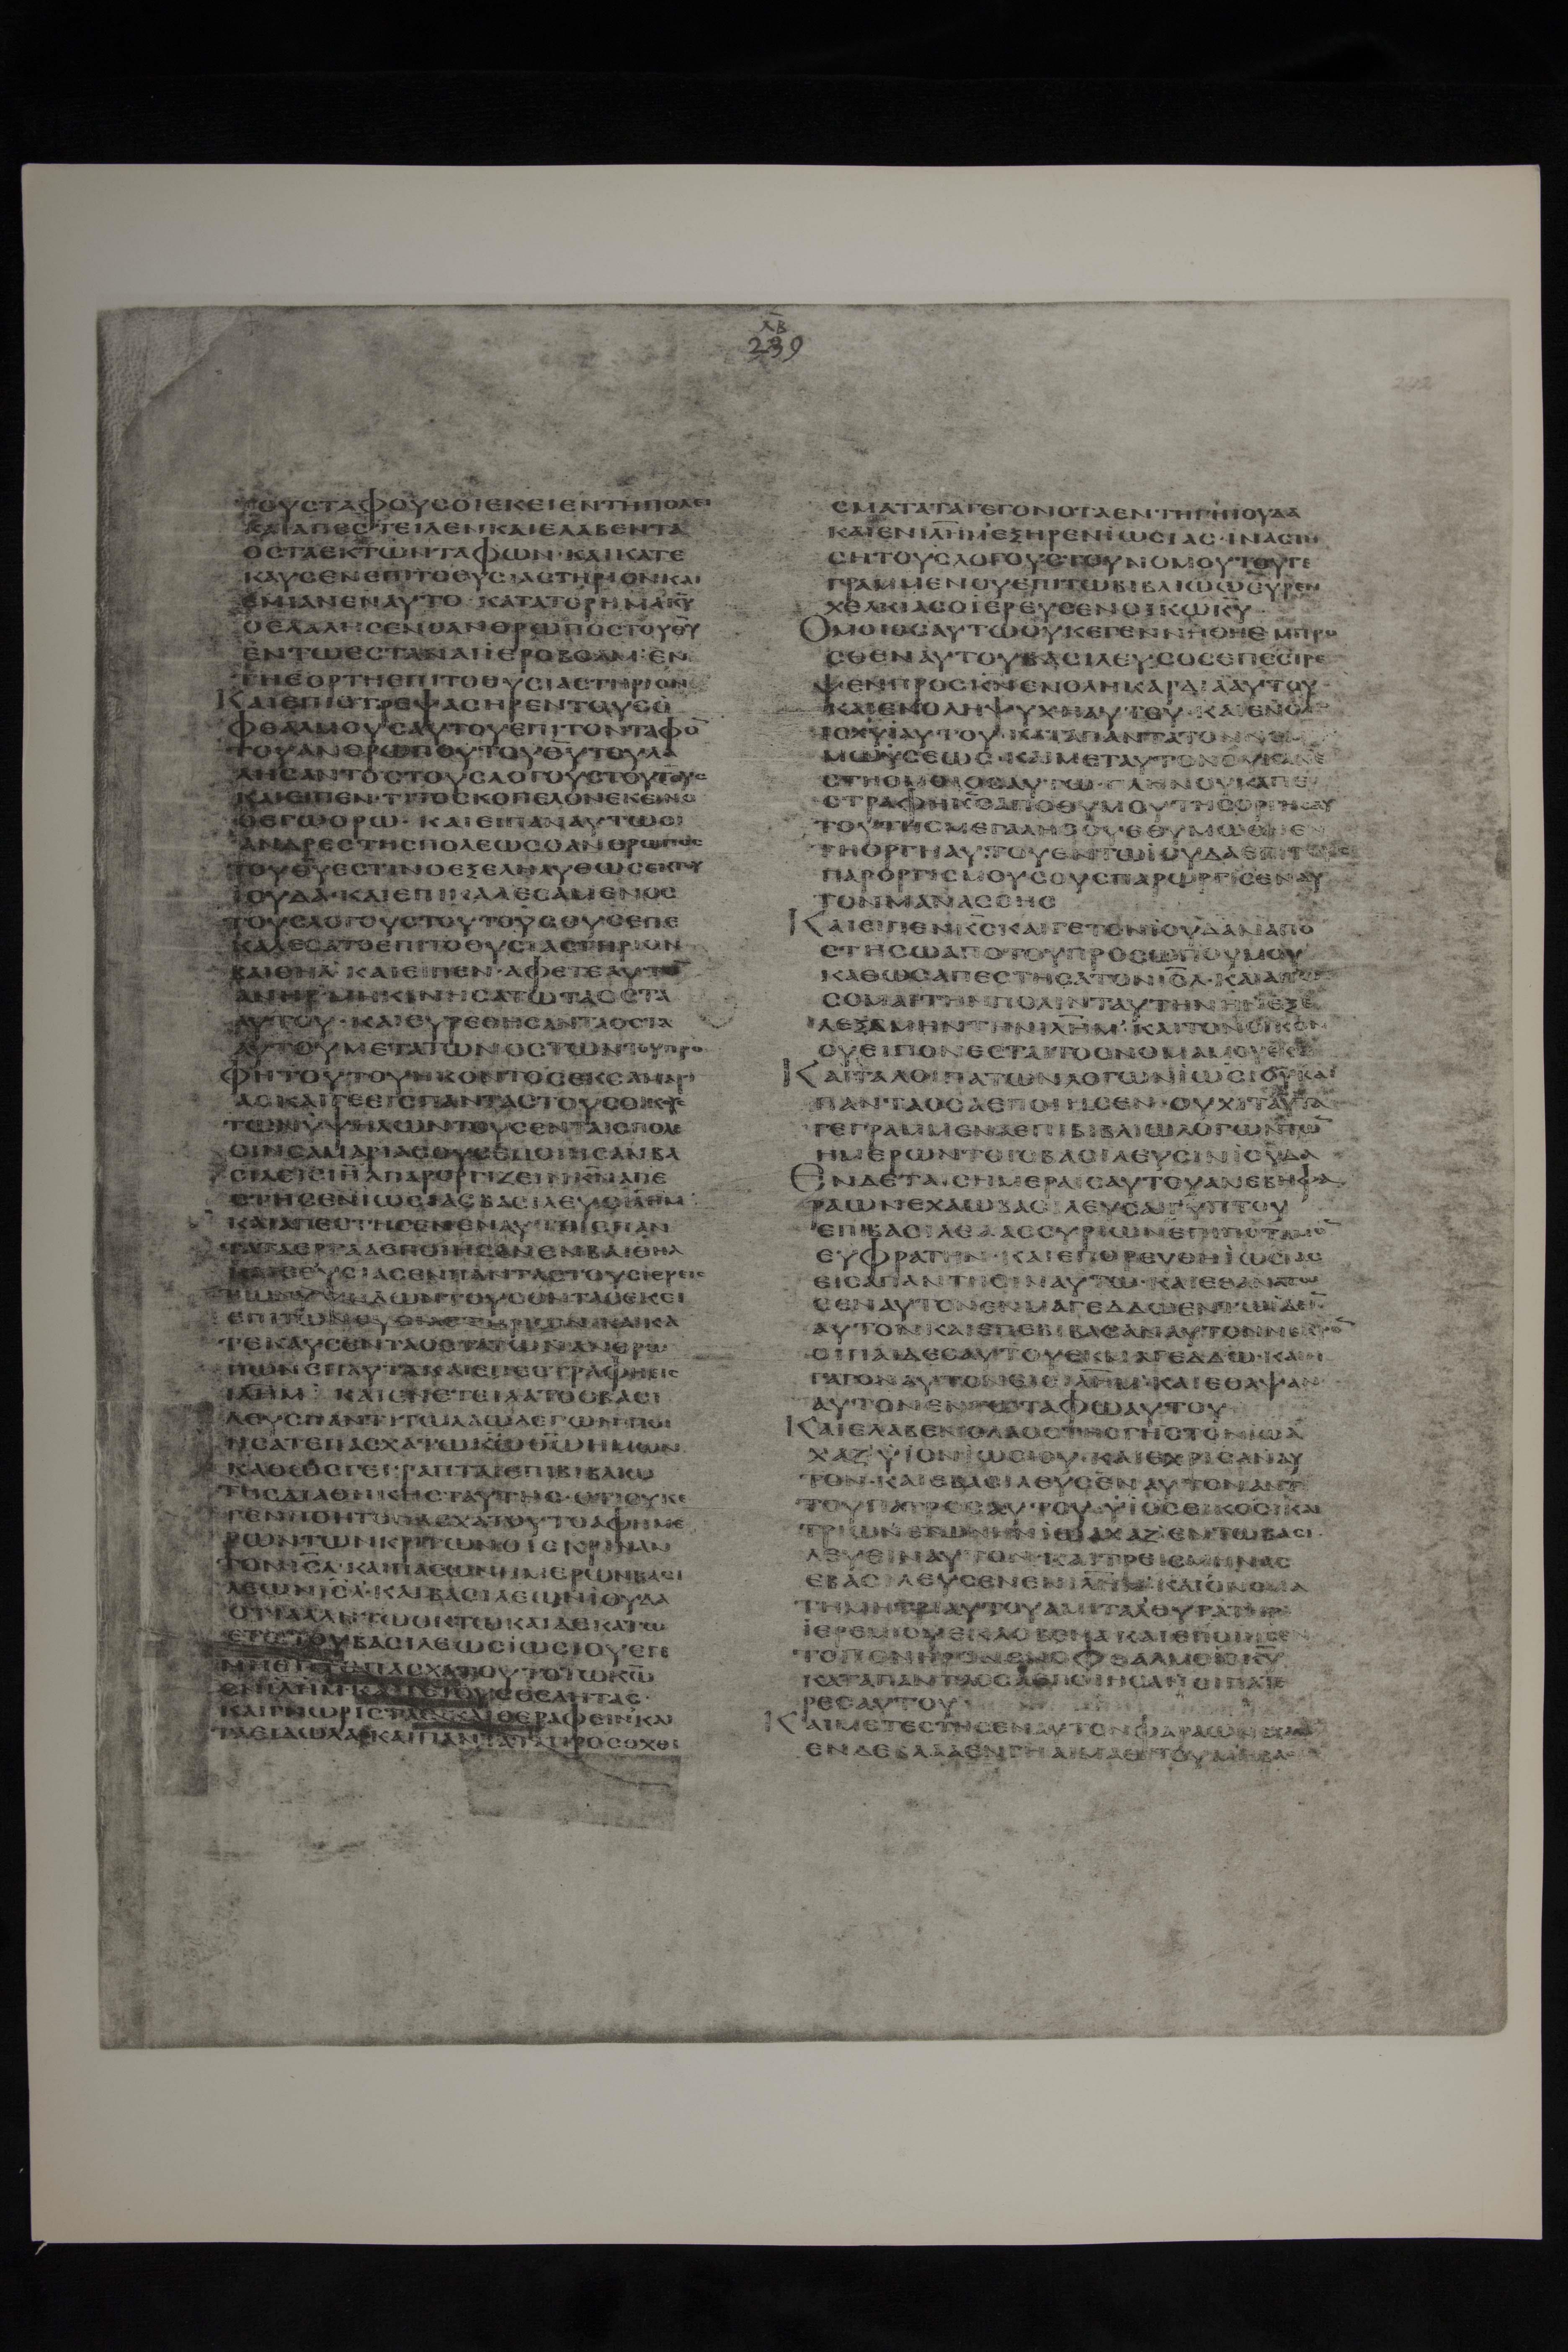 λβ
239
ΤΟΥϹΤΑΦΟΥϹΟΙΕΚΕΙΕΝΤΗΠΟΛΕΙ
ΚΑΙΑΠΕϹΤΕΙΛΕΝΚΑΙΕΛΑΒΕΝΤΑ
ΟϹΤΑΕΚΤΩΝΤΑΦΩΝ·ΚΑΙΚΑΤΕ
ΚΑΥϹΕΝΕΠΙΤΟΘΥϹΙΑϹΤΗΡΙΟΝΚΑΙ
ΕΜΙΑΝΕΝΑΥΤΟ·ΚΑΤΑΤΟΡΗΜΑΚ̅Υ̅
ΟΕΛΑΛΗϹΕΝΟΑΝΘΡΩΠΟϹΤΟΥΘ̅Υ̅
ΕΝΤΩΕϹΤΑΝΑΙΙΕΡΟΒΟΑΜ·ΕΝ
ΤΗΕΟΡΤΗΕΠΙΤΟΘΥϹΙΑϹΤΗΡΙΟΝ
ΚΑΙΕΠΙϹΤΡΕΨΑϹΗΡΕΝΤΟΥϹΟ
ΦΘΑΛΜΟΥϹΑΥΤΟΥΕΠΙΤΟΝΤΑΦΟ̅
ΤΟΥΑΝΘΡΩΠΟΥΤΟΥΘ̅Υ̅ΤΟΥΛΑ
ΛΗϹΑΝΤΟϹΤΟΥϹΛΟΓΟΥϹΤΟΥΤΟΥϹ
ΚΑΙΕΙΠΕΝ·ΤΙΤΟϹΚΟΠΕΛΟΝΕΚΕΙΝΟ
ΟΕΓΩΟΡΩ·ΚΑΙΕΙΠΑΝΑΥΤΩΟΙ
ΑΝΔΡΕϹΤΗϹΠΟΛΕΩϹΟΑΝΘΡΩΠΟϹ
ΤΟΥΘ̅Υ̅ΕϹΤΙΝΟΕΞΕΛΗΛΥΘΩϹΕΚΤΟΥ
ΙΟΥΔΑ·ΚΑΙΕΠΙΚΑΛΕϹΑΜΕΝΟϹ
ΤΟΥϹΛΟΓΟΥϹΤΟΥΤΟΥϹΟΥϹΕΠΕ
ΚΑΛΕϹΑΤΟΕΠΙΤΟΘΥϹΙΑϹΤΗΡΙΟΝ
ΒΑΙΘΗΛ·ΚΑΙΕΙΠΕΝ·ΑΦΕΤΕΑΥΤΟ
ΑΝΗΡΜΗΚΙΝΗϹΑΤΩΤΑΟϹΤΑ
ΑΥΤΟΥ·ΚΑΙΕΥΡΕΘΗϹΑΝΤΑΟϹΤΑ
ΑΥΤΟΥΜΕΤΑΤΩΝΟϹΤΩΝΤΟΥΠΡΟ
ΦΗΤΟΥΤΟΥΗΚΟΝΤΟϹΕΚϹΑΜΑΡΙ
ΑϹΚΑΙΓΕΕΙϹΠΑΝΤΑϹΤΟΥϹΟΙΚΟΥϹ
ΤΩΝΥΨΗΛΩΝΤΟΥϹΕΝΤΑΙϹΠΟΛΕ
ϹΙΝϹΑΜΑΡΙΑϹΟΥϹΕΠΟΙΗϹΑΝΒΑ
ϹΙΛΕΙϹΙΗ̅Λ̅ΠΑΡΟΡΓΙΖΕΙΝΚ̅Ν̅ΑΠΕ
ϹΤΗϹΕΝΙΩϹΙΑϹΒΑϹΙΛΕΥϹΙΛ̅Η̅Μ̅
ΚΑΙΑΠΕϹΤΗϹΕΝΕΝΑΥΤΟΙϹΠΑΝ
ΤΑΤΑΕΡΓΑΑΕΠΟΙΗϹΑΝΕΝΒΑΙΘΗΛ
ΚΑΙΕΘΥϹΙΑϹΕΝΠΑΝΤΑϹΤΟΥϹΙΕΡΕΙϹ
ΤΩΝΥΨΗΛΩΝΤΟΥϹΟΝΤΑϹΕΚΕΙ
ΕΠΙΤΩΝΘΥϹΙΑϹΤΗΡΙΩΝΚΑΙΚΑ
ΤΕΚΑΥϹΕΝΤΑΟϹΤΑΤΩΝΑΝΘΡΩ
ΠΩΝΕΠΑΥΤΑΚΑΙΕΠΕϹΤΡΑΦΗΕΙϹ
ΙΛ̅Η̅Μ̅·ΚΑΙΕΝΕΤΕΙΛΑΤΟΟΒΑϹΙ
ΛΕΥϹΠΑΝΤΙΤΩΛΑΩΛΕΓΩΝ·ΠΟΙ
ΗϹΑΤΕΠΑϹΧΑΤΩΚ̅Ω̅Θ̅Ω̅ΗΜΩΝ
ΚΑΘΩϹΓΕΓΡΑΠΤΑΙΕΠΙΒΙΒΛΙΟΥ
ΤΗϹΔΙΑΘΗΚΗϹΤΑΥΤΗϹ·ΟΤΙΟΥΚΕ
ΓΕΝΗΘΗΤΟΠΑϹΧΑΤΟΥΤΟΑΦΗΜΕ
ΡΩΝΤΩΝΚΡΙΤΩΝΟΙϹΚΡΙΝΑΝ
ΤΟΝΙϹ̅Λ̅·ΚΑΙΠΑϹΩΝΗΜΕΡΩΝΒΑϹΙ
ΛΕΩΝΙϹ̅Λ̅·ΚΑΙΒΑϹΙΛΕΩΝΙΟΥΔΑ
ΟΤΙΑΛΛΗΤΩΟΚΤΩΚΑΙΔΕΚΑΤΩ
ΕΤΕΙΤΟΥΒΑϹΙΛΕΩϹΙΩϹΙΟΥΕΓΕ
ΝΗΘΗΤΟΠΑϹΧΑΤΟΥΤΟΤΩΚ̅Ω̅
ΕΝΙΛ̅Η̅Μ̅·ΚΑΙΓΕΤΟΥϹΘΕΛΗΤΑϹ·
ΚΑΙΓΝΩΡΙϹΤΑϹΚΑΙΘΕΡΑΦΕΙΝΚΑΙ
ΤΑΕΙΔΩΛΑΚΑΙΠΑΝΤΑΤΑΠΡΟϹΟΧΘΙ
ϹΜΑΤΑΤΑΓΕΓΟΝΟΤΑΕΝΤΗΓΗΙΟΥΔΑ
ΚΑΙΕΝΙΛ̅Η̅Μ̅ΕΞΗΡΕΝΙΩϹΙΑϹ·ΙΝΑϹΤΗ
ϹΗΤΟΥϹΛΟΓΟΥϹΤΟΥΝΟΜΟΥΤΟΥΓΕ
ΓΡΑΜΜΕΝΟΥΕΠΙΤΩΒΙΒΛΙΩΩΕΥΡΕΝ
ΧΕΛΚΙΑϹΟΙΕΡΕΥϹΕΝΟΙΚΩΚ̅Υ̅
ΟΜΟΙΟϹΑΥΤΩΟΥΚΕΓΕΝΝΗΘΗΕΜΠΡΟ
ϹΘΕΝΑΥΤΟΥΒΑϹΙΛΕΥϹΟϹΕΠΕϹΤΡΕ
ΨΕΝΠΡΟϹΚ̅Ν̅ΕΝΟΛΗΚΑΡΔΙΑΑΥΤΟΥ
ΚΑΙΕΝΟΛΗΨΥΧΗΑΥΤΟΥ·ΚΑΙΕΝΟΛΗ
ΙϹΧΥΙΑΥΤΟΥ·ΚΑΤΑΠΑΝΤΑΤΟΝΝΟ
ΜΩΥϹΕΩϹ·ΚΑΙΜΕΤΑΥΤΟΝΟΥΚΑΝΕ
ϹΤΗΟΜΟΙΟϹΑΥΤΩ·ΠΛΗΝΟΥΚΑΠΕ
ϹΤΡΑΦΗΚ̅Ϲ̅ΑΠΟΘΥΜΟΥΤΗϹΟΡΓΗϹΑΥ
ΤΟΥΤΗϹΜΕΓΑΛΗϹΟΥΕΘΥΜΩΘΗΕΝ
ΤΗΟΡΓΗΑΥΤΟΥΕΝΤΩΙΟΥΔΑΕΠΙΤΟΥϹ
ΠΑΡΟΡΓΙϹΜΟΥϹΟΥϹΠΑΡΩΡΓΙϹΕΝΑΥ
ΤΟΝΜΑΝΑϹϹΗϹ
ΚΑΙΕΙΠΕΝΚ̅Ϲ̅ΚΑΙΓΕΤΟΝΙΟΥΔΑΝΑΠΟ
ϹΤΗϹΩΑΠΟΤΟΥΠΡΟϹΩΠΟΥΜΟΥ
ΚΑΘΩϹΑΠΕϹΤΗϹΑΤΟΝΙϹ̅Λ̅·ΚΑΙΑΠΩ
ϹΟΜΑΙΤΗΝΠΟΛΙΝΤΑΥΤΗΝΗΝΕΞΕ
ΛΕΞΑΜΗΝΤΗΝΙΛ̅Η̅Μ̅·ΚΑΙΤΟΝΟΙΚΟΝ
ΟΥΕΙΠΟΝΕϹΤΑΙΤΟΟΝΟΜΑΜΟΥΕΚΕΙ
ΚΑΙΤΑΛΟΙΠΑΤΩΝΛΟΓΩΝΙΩϹΙΟΥΚΑΙ
ΠΑΝΤΑΟϹΑΕΠΟΙΗϹΕΝ·ΟΥΧΙΤΑΥΤΑ
ΓΕΓΡΑΜΜΕΝΑΕΠΙΒΙΒΛΙΩΛΟΓΩΝΤΩ̅
ΗΜΕΡΩΝΤΟΙϹΒΑϹΙΛΕΥϹΙΝΙΟΥΔΑ
ΕΝΔΕΤΑΙϹΗΜΕΡΑΙϹΑΥΤΟΥΑΝΕΒΗΦΑ
ΡΑΩΝΕΧΑΩΒΑϹΙΛΕΥϹΑΙΓΥΠΤΟΥ
ΕΠΙΒΑϹΙΛΕΑΑϹϹΥΡΙΩΝΕΠΙΠΟΤΑΜΟ̅
ΕΥΦΡΑΤΗΝ·ΚΑΙΕΠΟΡΕΥΘΗΙΩϹΙΑϹ
ΕΙϹΑΠΑΝΤΗϹΙΝΑΥΤΩ·ΚΑΙΕΘΑΝΑΤΩ
ϹΕΝΑΥΤΟΝΕΝΜΑΓΕΔΔΩΕΝΤΩΙΔΕΙ̅
ΑΥΤΟΝΚΑΙΕΠΕΒΙΒΑϹΑΝΑΥΤΟΝΝΕΚΡΟ̅
ΟΙΠΑΙΔΕϹΑΥΤΟΥΕΚΜΑΓΕΔΔΩ·ΚΑΙΗ
ΓΑΓΟΝΑΥΤΟΝΕΙϹΙΛ̅Η̅Μ̅·ΚΑΙΕΘΑΨΑΝ
ΑΥΤΟΝΕΝΤΩΤΑΦΩΑΥΤΟΥ
ΚΑΙΕΛΑΒΕΝΟΛΑΟϹΤΗϹΓΗϹΤΟΝΙΩΑ
ΧΑΖΥΙΟΝΙΩϹΙΟΥ·ΚΑΙΕΧΡΙϹΑΝΑΥ
ΤΟΝ·ΚΑΙΕΒΑϹΙΛΕΥϹΕΝΑΥΤΟΝΑΝΤΙ
ΤΟΥΠΑΤΡΟϹΑΥΤΟΥ·ΥΙΟϹΕΙΚΟϹΙΚΑΙ
ΤΡΙΩΝΕΤΩΝΗΝΙΩΑΧΑΖΕΝΤΩΒΑϹΙ
ΛΕΥΕΙΝΑΥΤΟΝ·ΚΑΙΤΡΕΙϹΜΗΝΑϹ
ΕΒΑϹΙΛΕΥϹΕΝΕΝΙΛ̅Η̅Μ̅·ΚΑΙΟΝΟΜΑ
ΤΗΜΗΤΡΙΑΥΤΟΥΑΜΙΤΑΛΘΥΓΑΤΗΡ
ΙΕΡΕΜΙΟΥΕΚΛΟΒΕΝΑΚΑΙΕΠΟΙΗϹΕΝ
ΤΟΠΟΝΗΡΟΝΕΝΟΦΘΑΛΜΟΙϹΚ̅Υ̅
ΚΑΤΑΠΑΝΤΑΟϹΑΕΠΟΙΗϹΑΝΟΙΠΑΤΕ
ΡΕϹΑΥΤΟΥ
ΚΑΙΜΕΤΕϹΤΗϹΕΝΑΥΤΟΝΦΑΡΑΩΝΕΧΑΩ
ΕΝΔΕΒΛΑΑΕΝΓΗΑΙΜΑΘΤΟΥΜΗΒΑ